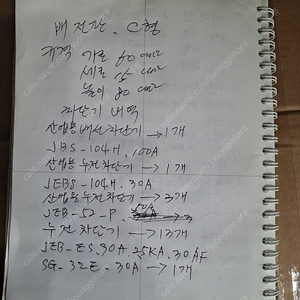 배전판. C형
규격 가로 60 cm
세로 15 cm
높이 80 cm
차단기 내역
산업용 배선차단기 → 1개
JBS-104H. 100A
산업용 누전차단기 → 1개
JEBS-104H. 30A
산업용 누전차단기 → 3개
JEB-52-P. 50A
누전차단기 → 13개
JEB-ES. 30A. 25KA. 30AF
SG-32E - 30A → 1개